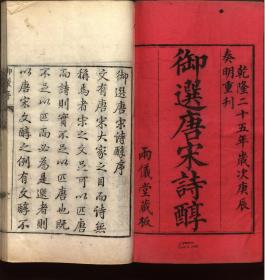 乾隆二十五年歲次庚辰
奏明重刊
御選唐宋詩醇
兩儀堂藏板
御選唐宋詩醇序
文有唐宋大家之目而詩無
稱焉者宋之文足可以匹唐
而詩則實不足以匹唐也既
不足以匹而必為是選者則
以唐宋文醇之例有文醇不